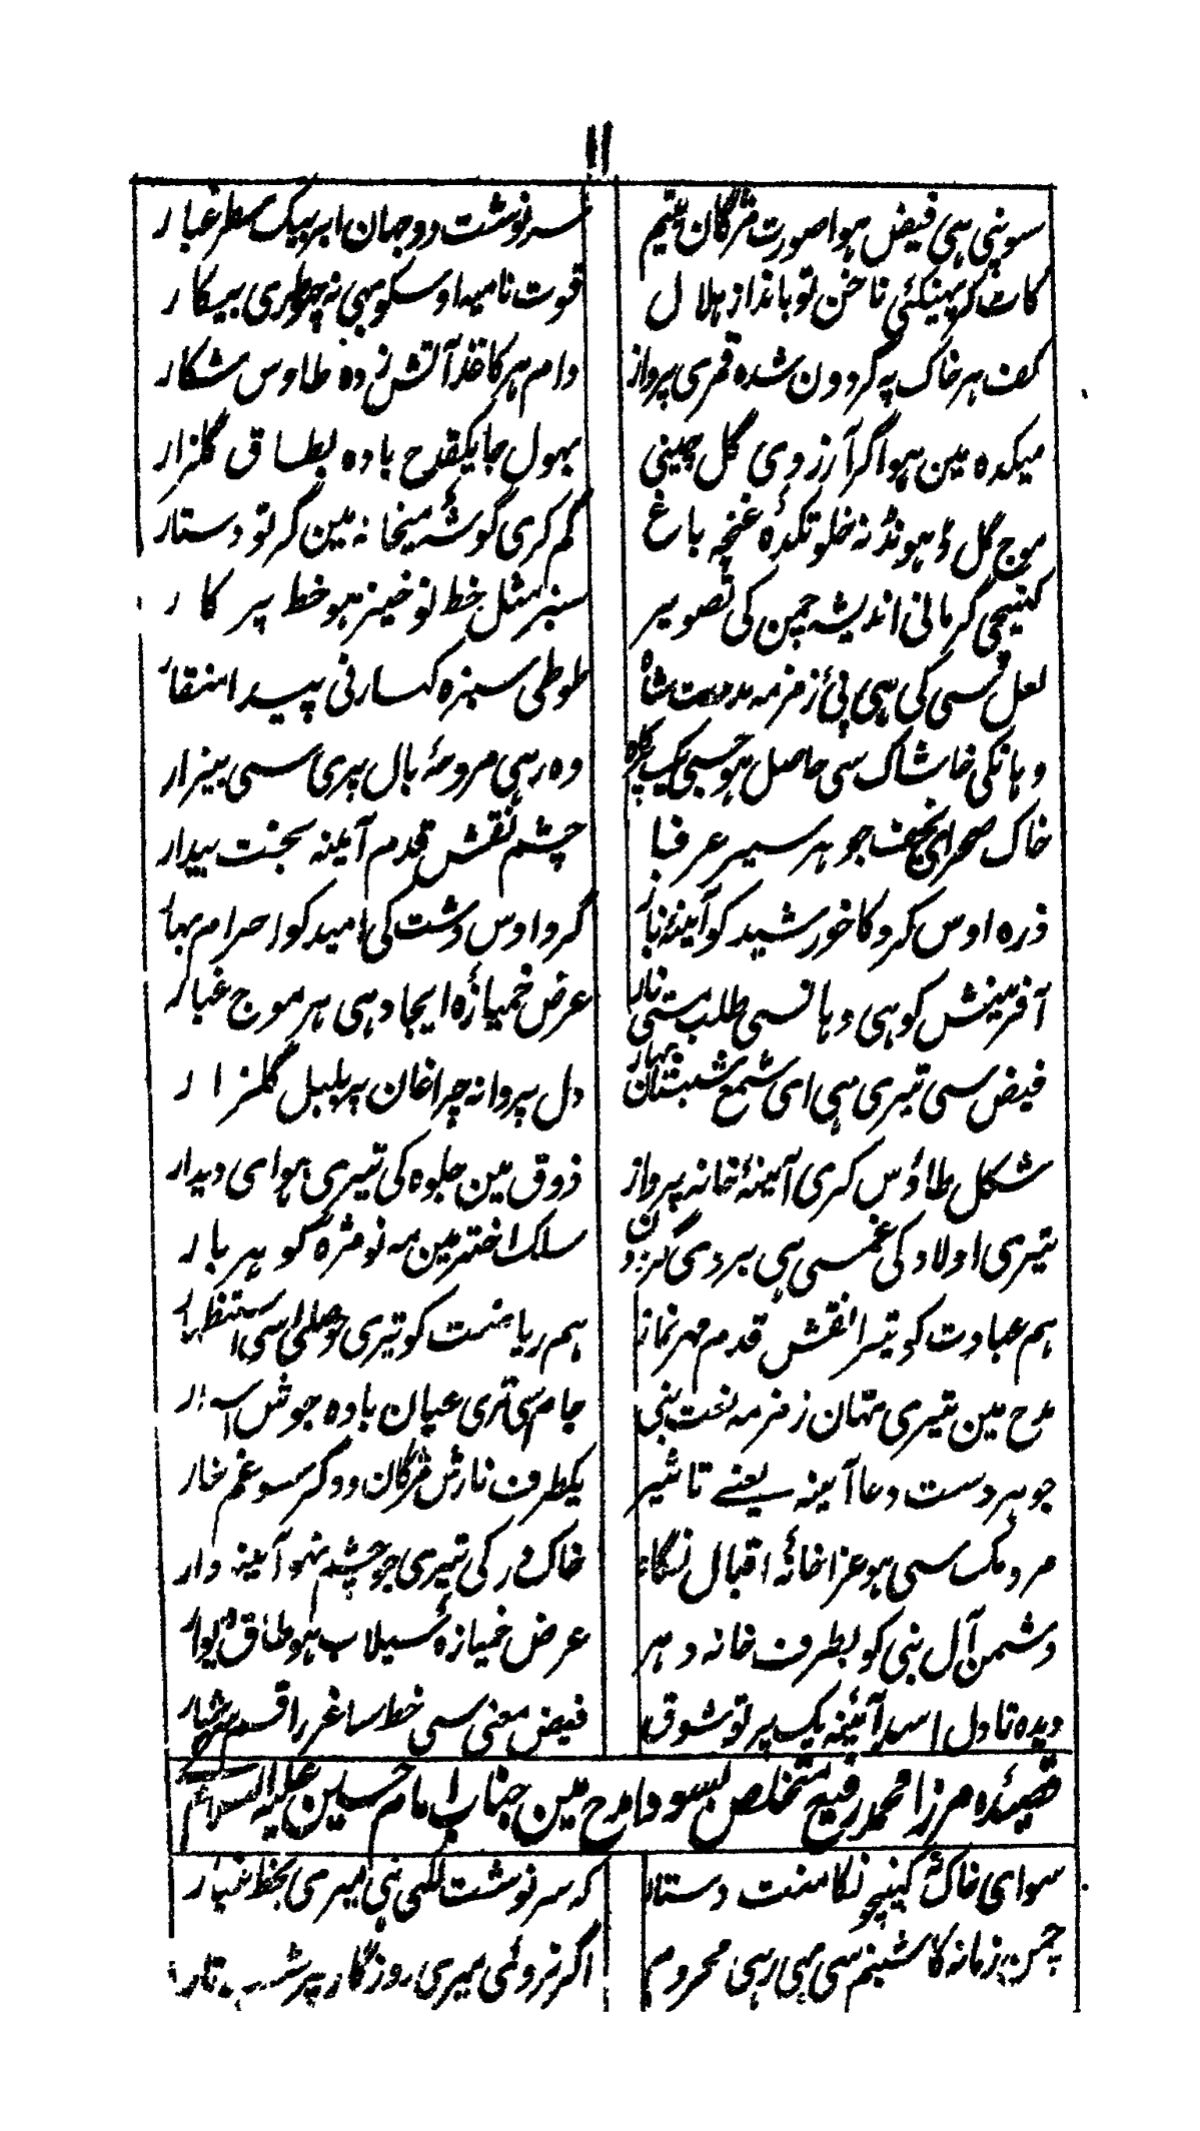 ۱۱
سونپی ہی فیض ہوا صورت مژگان یتیم سرنوشت دو جہان ابر بیک سطر غبار
کاٹ کر پہینکئی ناخن تو بانداز ہلال قوت نامیہ اوسکو بہی نہ چھوڑی بیکار
کف ہر خاک پہ گردون شدہ قمری پرواز دام ہر کاغذ آتش زدہ طاوس شکار
میکدہ مین ہو اگر آرزوی گل چینی بہول جا یکقدح بادہ بطاق گلزار
موج گل ڈہونڈہ نہ خلوتکدۂ غنچہ باغ گم کری گوشۂ میخانہ مین گر تو دستار
کہنیچی گر مانی اندیشہ چمن کی تصویر سبز مثل خط نوخیز ہو خط پرکار
لعل سی کی ہی پئی زمزمہ مدحت شاہ طوطی سبزہ کہسار نی پیدا منقار
وہانکی خاشاک سی حاصل ہو جسی یک پرکاہ وہ رہی مروحۂ بال پری سی بیزار
خاک صحرای نجف جوہر سیر عرفا چشم نقش قدم آیینہ بخت بیدار
ذرہ اوس گرد کا خورشید کو آئینہ ناز گرد اوس دشت کی امید کو احرام بہار
آفرینش کو ہی وہانسی طلب مستی ناز عرض خمیازۂ ایجاد ہی ہر موج غبار
فیض سی تیری ہی ای شمع شبستان بہار دل پروانہ چراغان پر بلبل گلزار
شکل طاؤس کری آئینۂ خانہ پرواز ذوق مین جلوہ کی تیری ہوای دیدار
تیری اولاد کی غم سی ہی بروی گردون سلک اختر مین مہ نو مژہ گوہر بار
ہم عبادت کو تیرا نقش قدم مہر نماز ہم ریاضت کو تیری حوصلی سی استظہار
مدح مین تیری نہان زمزمہ نعت نبی جام سی تری عیان بادہ جوش اسرار
جوہر دست دعا آیینہ یعنے تاثیر یکطرف نازش مژگان و دگر سو غم خار
مردمک سی ہو عزاخانۂ اقبال نگاہ خاک در کی تیری جو چشم نہو آیینہ دار
دشمن آل نبی کو بطرف خانہ دہر عرض خمیازہ سیلاب ہو طاق دیوار
دیدہ تا دل اسد آئینہ یک پرتو شوق فیض معنی سی خط ساغر راقم سرشار
قصیدہ مرزا محمد رفیع متخلص بسودا مدح مین جناب امام حسین علیہ السلام
سوای خاک نہ کہینچونگا منت دستار کہ سرنوشت لکہی ہی میری بخط غبار
چمن زمانہ کا شبنم سی بہی رہی محروم اگر نروئی میری روزگار پر شب تار